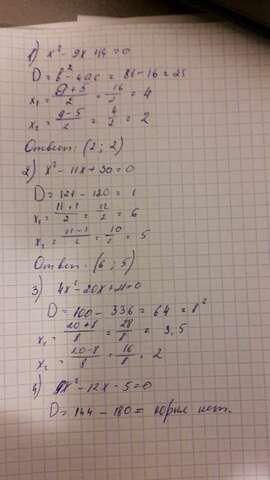 1) x² - 9x + 14 = 0
D = b² - 4ac = 81 - 16 = 25
x₁ = (9+5)/2 = 16/2 = 4
x₂ = (9-5)/2 = 4/2 = 2
Ответ: (2; 2)
2) x² - 11x + 30 = 0
D = 121 - 120 = 1
x₁ = (11+1)/2 = 12/2 = 6
x₂ = (11-1)/2 = 10/2 = 5
Ответ: (6; 5)
3) 4x² - 20x + 21 = 0
D = 100 - 336 = 64 = 8²
x₁ = (20+8)/8 = 28/8 = 3,5
x₂ = (20-8)/8 = 16/8 = 2
4) x² - 12x - 5 = 0
D = 144 - 180 = корней нет.